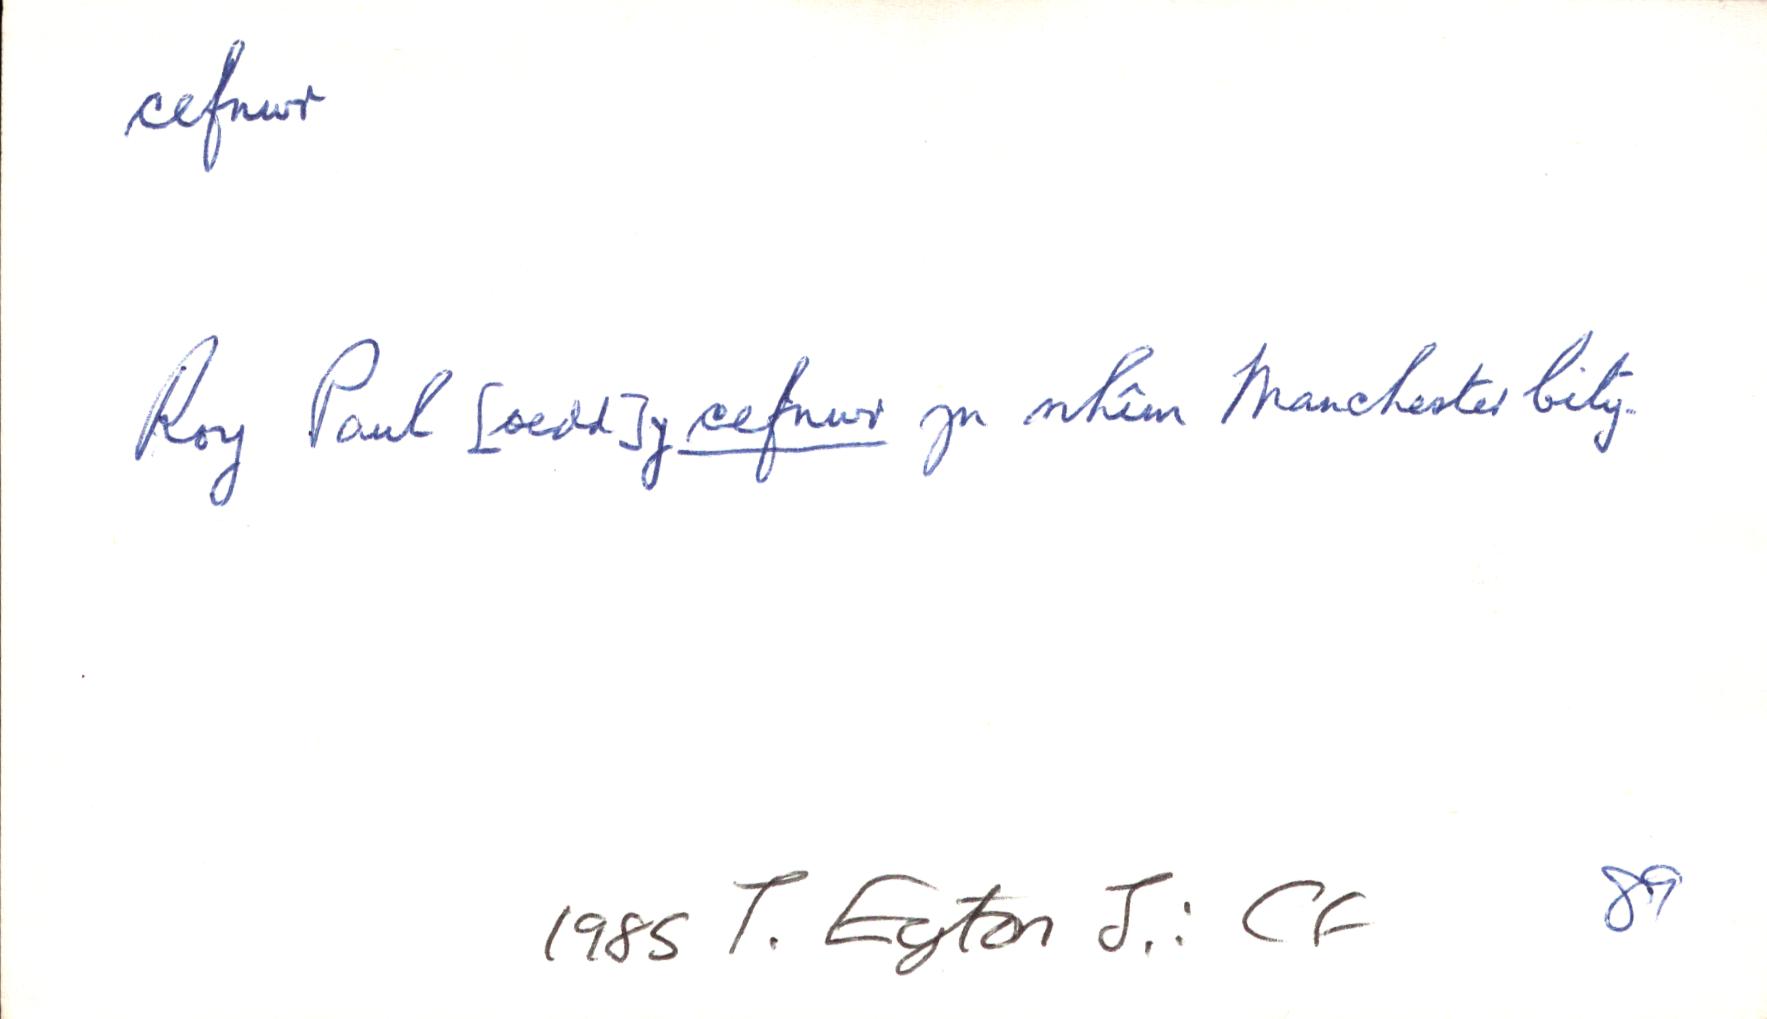 cefnwr
Roy Paul [oedd] y cefnwr yn nhîm Manchester City.
1985 T. Eyton J.: CF 89